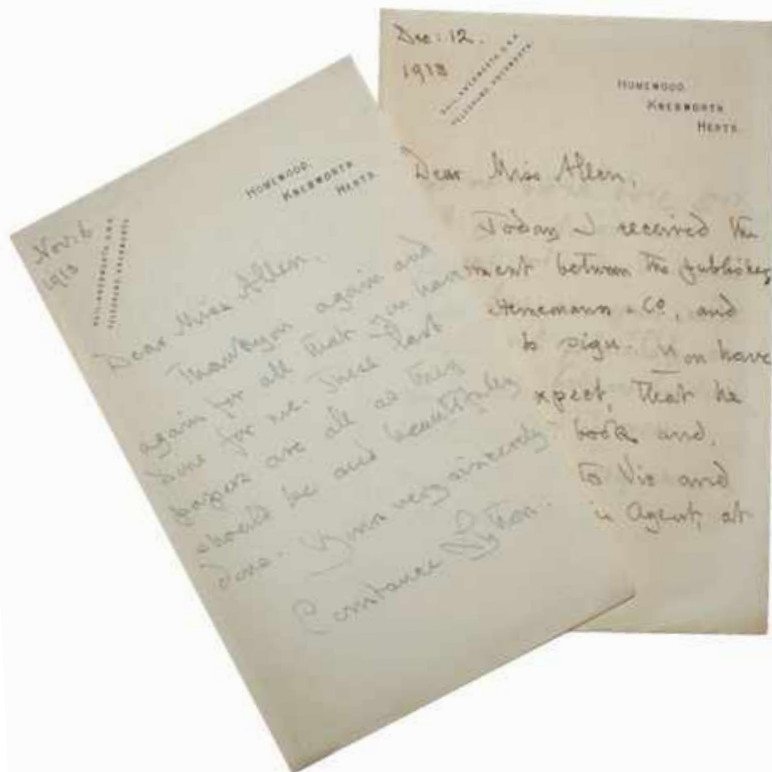 Nov: 6
1913
RAIL: KNEBWORTH. G.N.R.
TELEGRAMS: KNEBWORTH.
HOMEWOOD.
KNEBWORTH.
HERTS.
Dear Miss Allen.
Thankyou again and
again for all that you have
done for me. These last
papers are all as they
should be and beautifully
done. Yours very sincerely
Constance Lytton.
Dec: 12.
1913
RAIL: KNEBWORTH. G.N.R.
TELEGRAMS: KNEBWORTH.
HOMEWOOD.
KNEBWORTH.
HERTS.
Dear Miss Allen.
Today I received the
ment between the publisher
Heinemann & Co, and
to sign. You have
xpect, that he
book and,
to Vic and
Agent, at